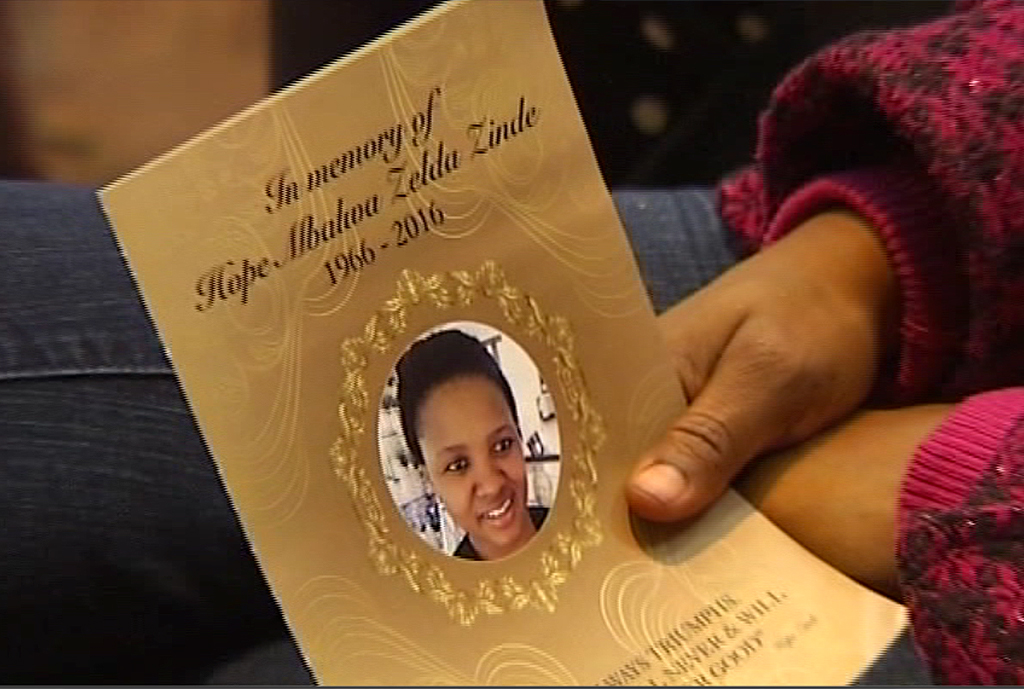 In memory of
Hope Mbalwa Zelda Zinde
1966 - 2016
WAYS TRIUMPHS
NEVER & WILL
GOOD"